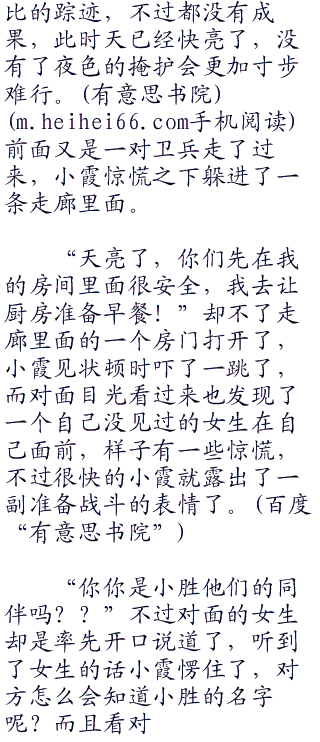 比的踪迹，不过都没有成
果，此时天已经快亮了，没
有了夜色的掩护会更加寸步
难行。(有意思书院)
(m.heihei66.com手机阅读)
前面又是一对卫兵走了过
来，小霞惊慌之下躲进了一
条走廊里面。
“天亮了，你们先在我
的房间里面很安全，我去让
厨房准备早餐！”却不了走
廊里面的一个房门打开了，
小霞见状顿时吓了一跳了，
而对面目光看过来也发现了
一个自己没见过的女生在自
己面前，样子有一些惊慌，
不过很快的小霞就露出了一
副准备战斗的表情了。(百度
“有意思书院”)
“你你是小胜他们的同
伴吗？？”不过对面的女生
却是率先开口说道了，听到
了女生的话小霞愣住了，对
方怎么会知道小胜的名字
呢？而且看对